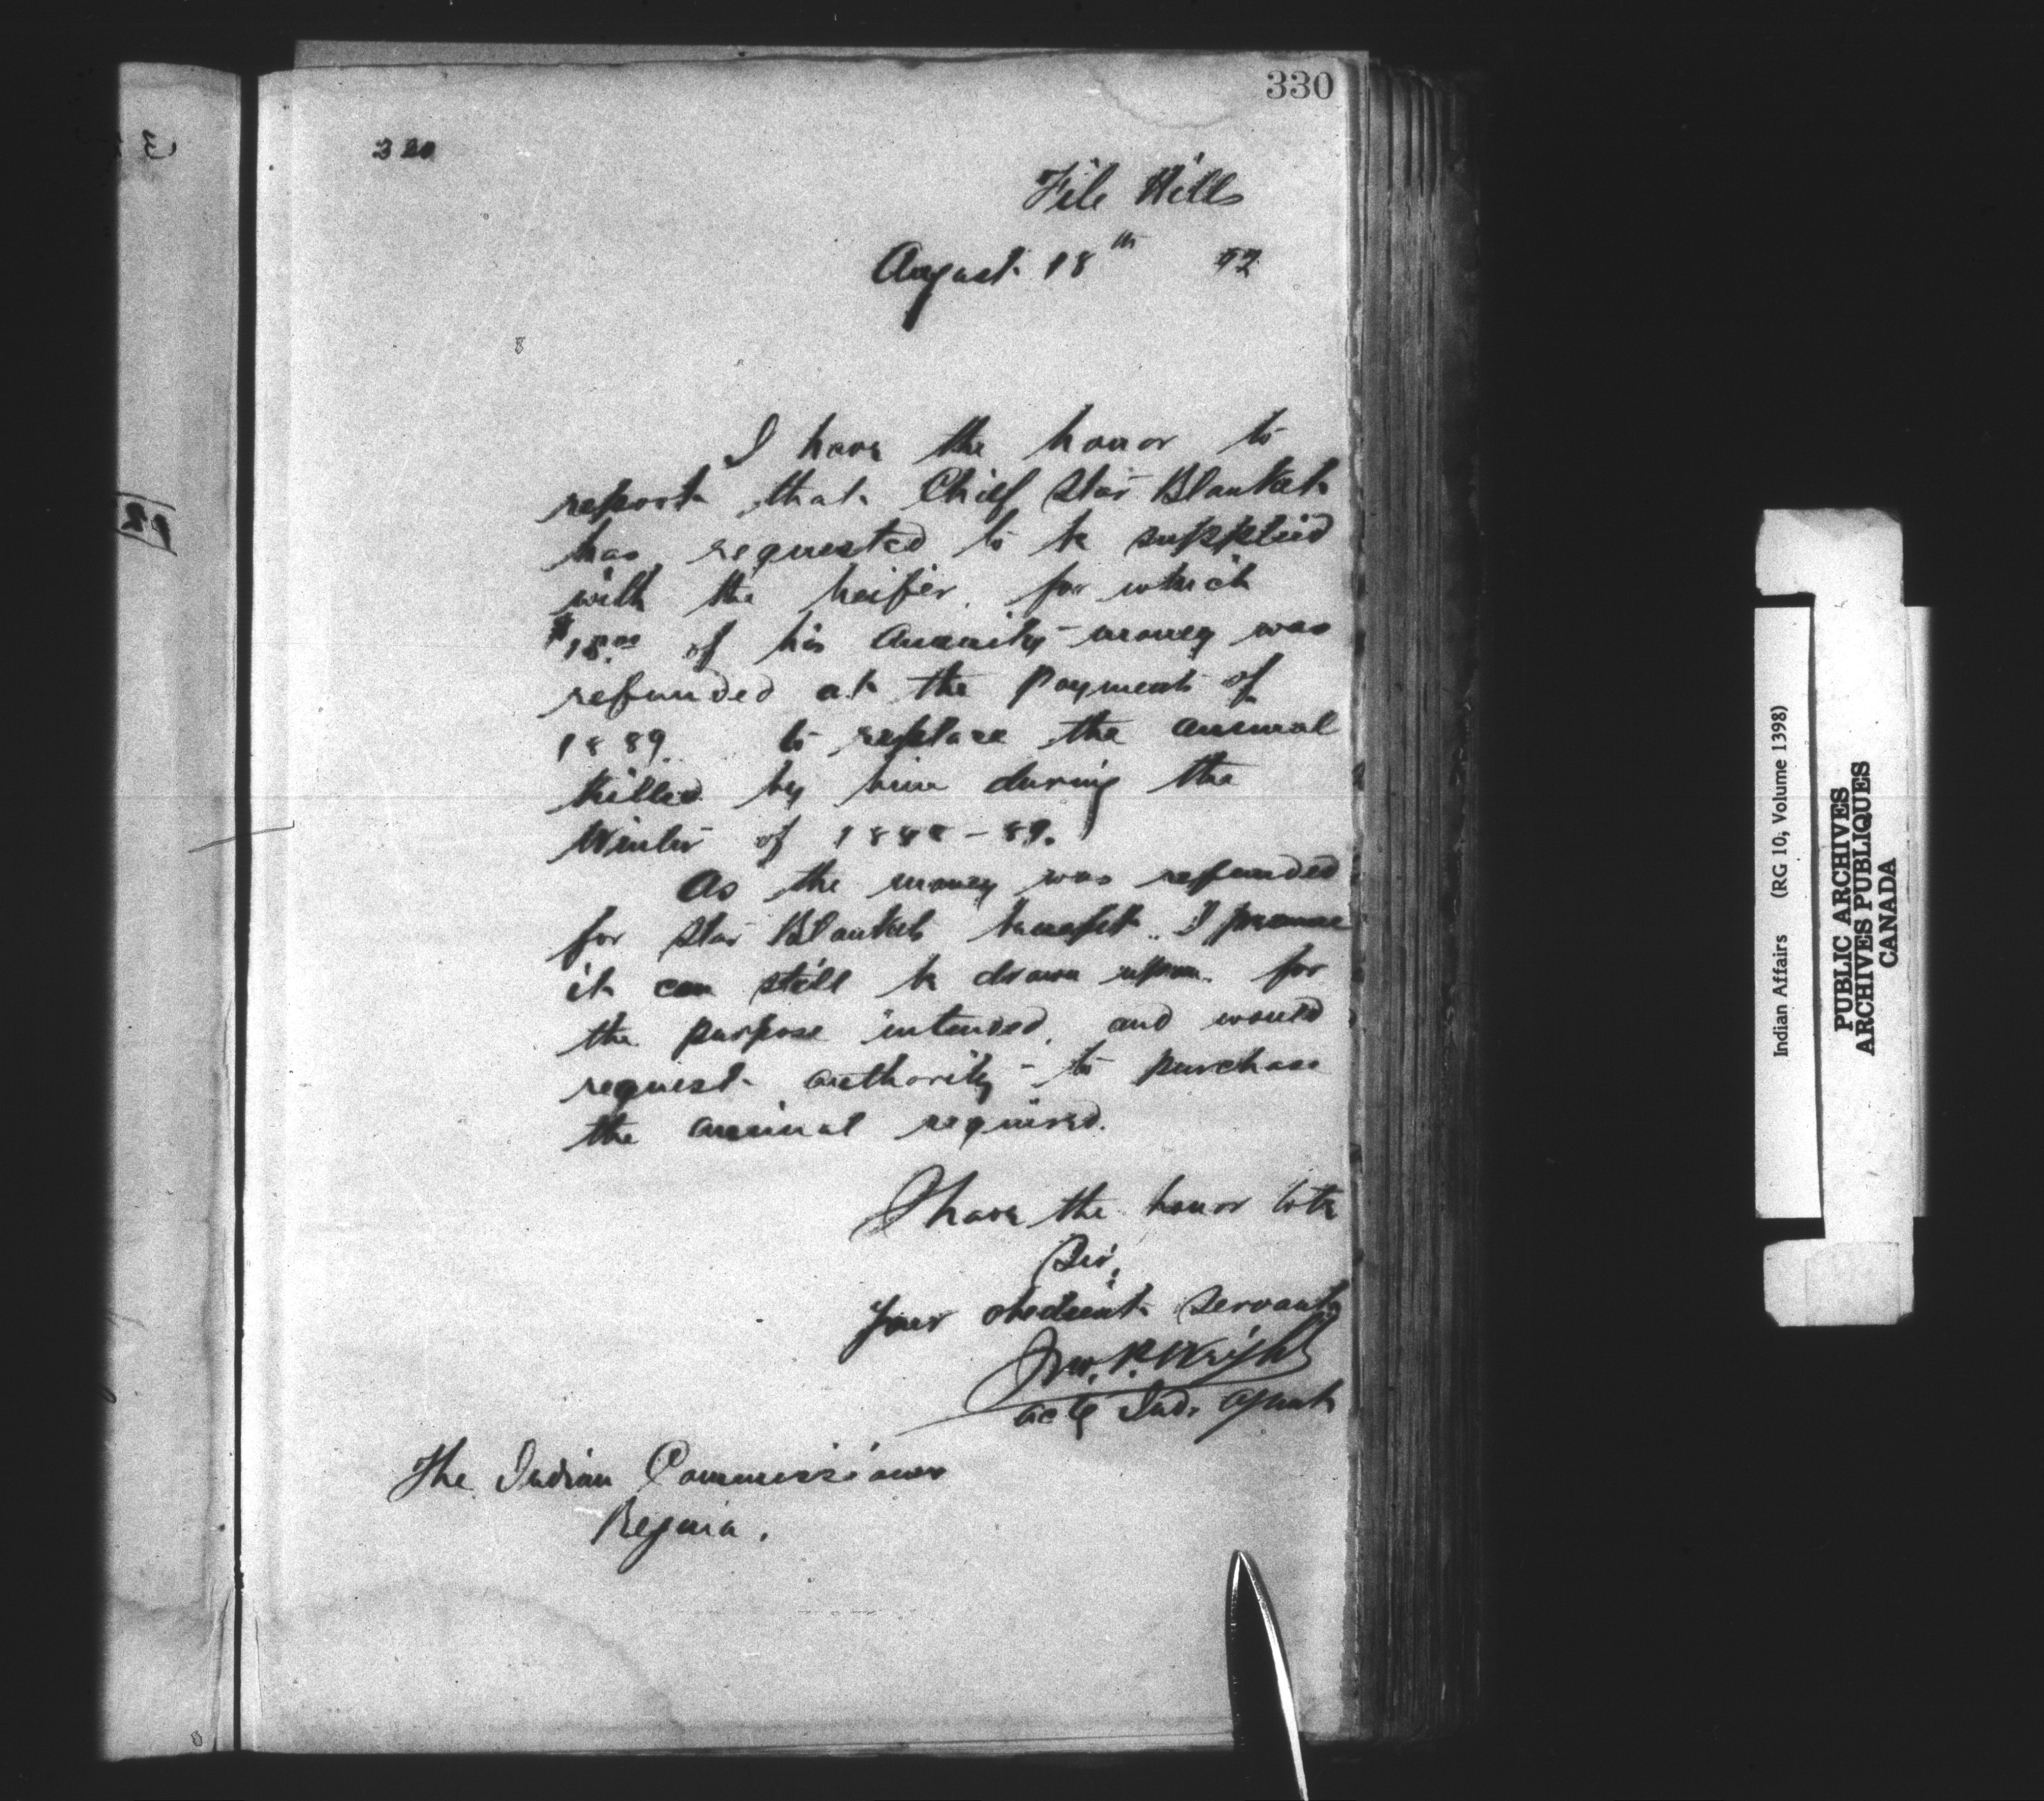 330
320
File Hills
August 18th 92
I have the honor to
report that Chief Star Blanket
has requested to be supplied
with the heifer, for which
$18.00 of his annuity money was
refunded at the payments of
1889. to replace the animal
killed by him during the
Winter of 1888-89.
As the money was refunded
for Star Blankets benefit. I presume
it can still be drawn upon for
the purpose intended, and would
request authority to purchase
the animal required.
I have the honor to be
Sir,
Your obedient servant
Jno. P. Wright
Actg Ind. Agent
The Indian Commissioner
Regina.
Indian Affairs (RG 10, Volume 1398)
PUBLIC ARCHIVES
ARCHIVES PUBLIQUES
CANADA